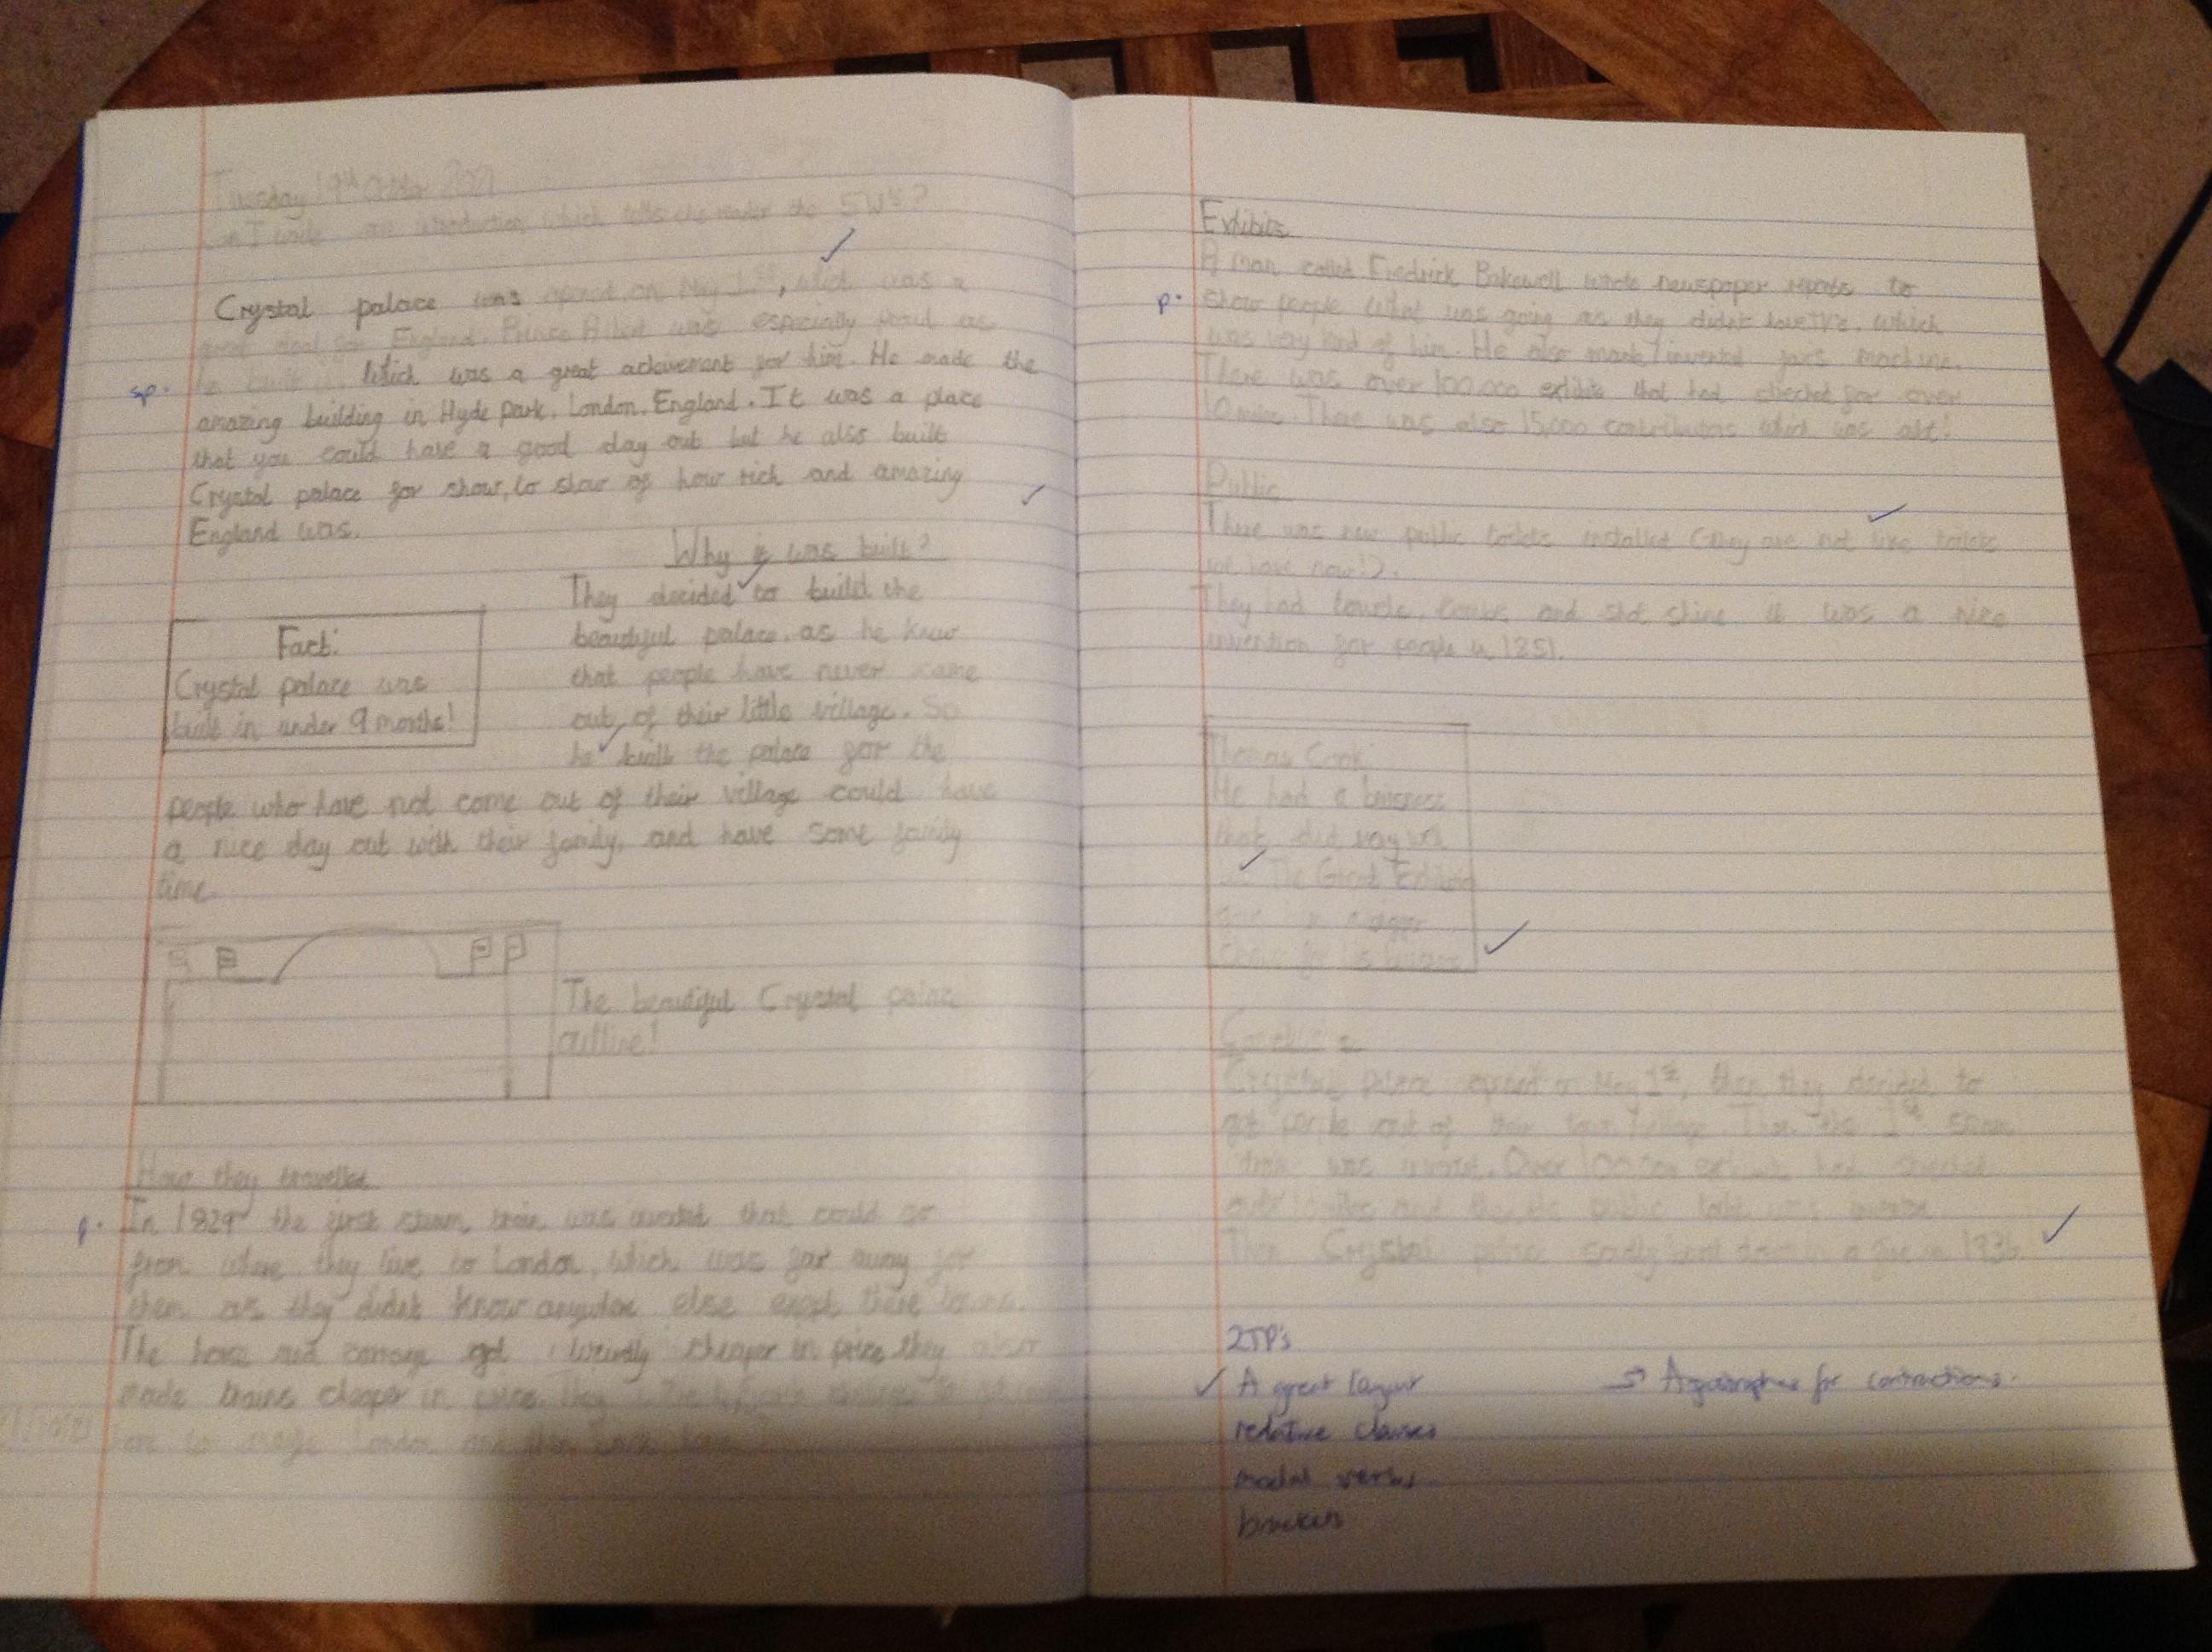 Tuesday 19th October 2021
Can I write an introduction which tells the reader the 5W's?
Crystal palace was opened on May 1st, which was a
great deal for England. Prince Albert was especially proud as
he built it. Which was a great achivement for him. He made the
sp.
amazing building in Hyde park, London, England. It was a place
that you could have a good day out but he also built
Crystal palace for show, to show of how rich and amazing
England was.
Why it was built?
They decided to build the
beautiful palace. as he knew
that people have never came
out of their little village. So
he built the palace for the
Fact:
Crystal palace was
built in under 9 months!
people who have not come out of their village could have
a nice day out with their family, and have some family
time.
The beautiful Crystal palace
outline!
How they travelled
p.
In 1829 the first steam train was created that could go
from where they live to London, which was far away for
them as they didnt know else there towns.
The horse and carriage got cheaper in price they
made trains cheaper in price. They
to London and then
Exhibits
A man called Fredrick Bakewell wrote newspaper to
p.
show people what was going as they didnt have TV's, which
was very kind of him. He also invented machine.
There was over 100,000 exhibits that had streched for over
10 miles. There was also 15,000 contributors which was alot!
Public
There was new public toilets installed (they are not like toilets
we have now!).
They had towels, combs and shoe shine it was a nice
invention for people in 1851.
Thomas Cook
He had a
that did very well
The Great Exhibition
gave him a bigger
for his
Crystal palace opened on May 1st, then they decided to
get people out of their town/village. Then the 1st steam
train was Over 100,000 exhibits had streched
over 10 miles and public toilets was
Then Crystal palace sadly burnt down in a fire in 1936
2TP's
A great layout
relative clauses
modal verbs
brackets
Apostrophes for contractions.